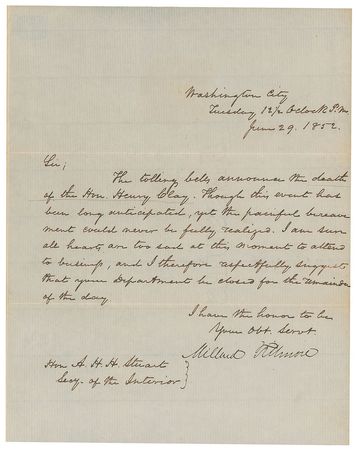 Washington City
Tuesday 12½ OClock P.M.
June 29. 1852.
Sir;
The tolling bells announce the death
of the Hon. Henry Clay. Though this event has
been long anticipated, yet the painful bereave
ment could never be fully realized. I am sure
all hearts are too sad at this moment to attend
to business, and I therefore respectfully suggest
that your Department be closed for the remainder
of the day.
I have the honor to be
Your Obt. Servt
Millard Fillmore
Hon A. H. H. Stuart
Secy. of the Interior